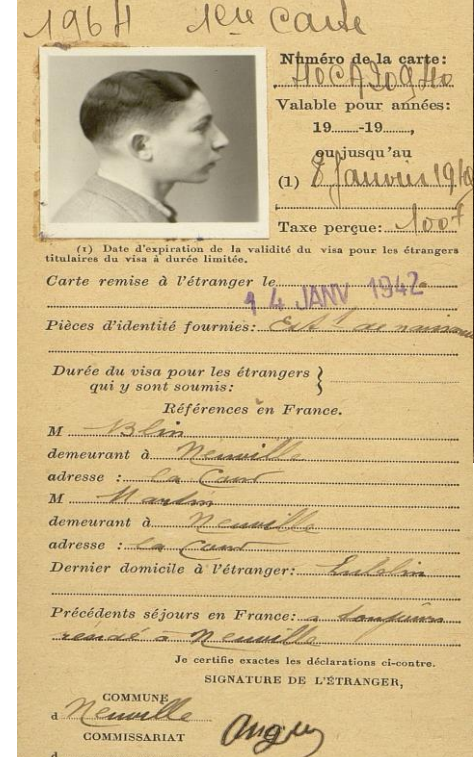 1964 1ere Carte
Numéro de la carte:
Valable pour années:
19........-19........,
ou jusqu'au
(1) 8 Janvier 19
Taxe perçue: 100 f
(1) Date d'expiration de la validité du visa pour les étrangers
titulaires du visa à durée limitée.
Carte remise à l'étranger le
14 JANV 1942
Pièces d'identité fournies: Ext de naissance
Durée du visa pour les étrangers }
qui y sont soumis:
Références en France.
M Blin
demeurant à Neuville
adresse : la Cour
M Martin
demeurant à Neuville
adresse : la Cour
Dernier domicile à l'étranger: Lublin
Précédents séjours en France: a toujours
résidé à Neuville
Je certifie exactes les déclarations ci-contre.
SIGNATURE DE L'ÉTRANGER,
COMMUNE
d Neuville
COMMISSARIAT
d